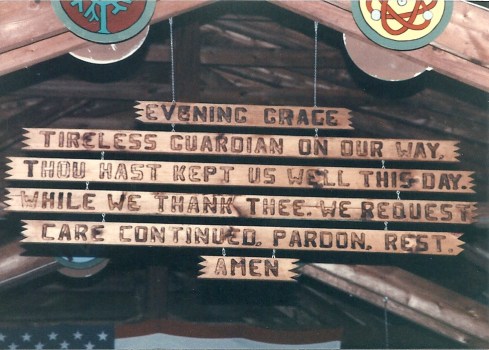 EVENING GRACE
TIRELESS GUARDIAN ON OUR WAY,
THOU HAST KEPT US WELL THIS DAY.
WHILE WE THANK THEE, WE REQUEST
CARE CONTINUED, PARDON, REST.
AMEN